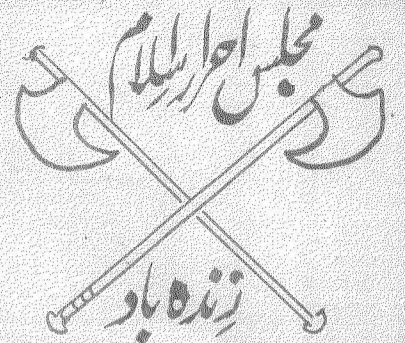 مجلس احرار اسلام
زندہ باد